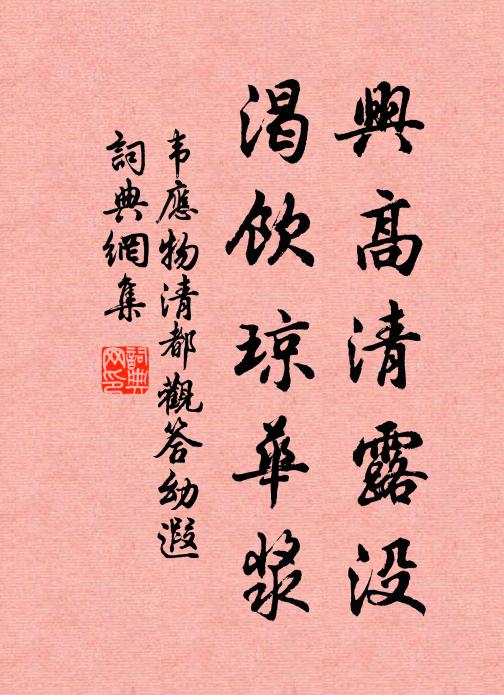 興高清露没
渇飲琼華漿
韦應物清都觀答幼遐
詞典網集
詞典网印